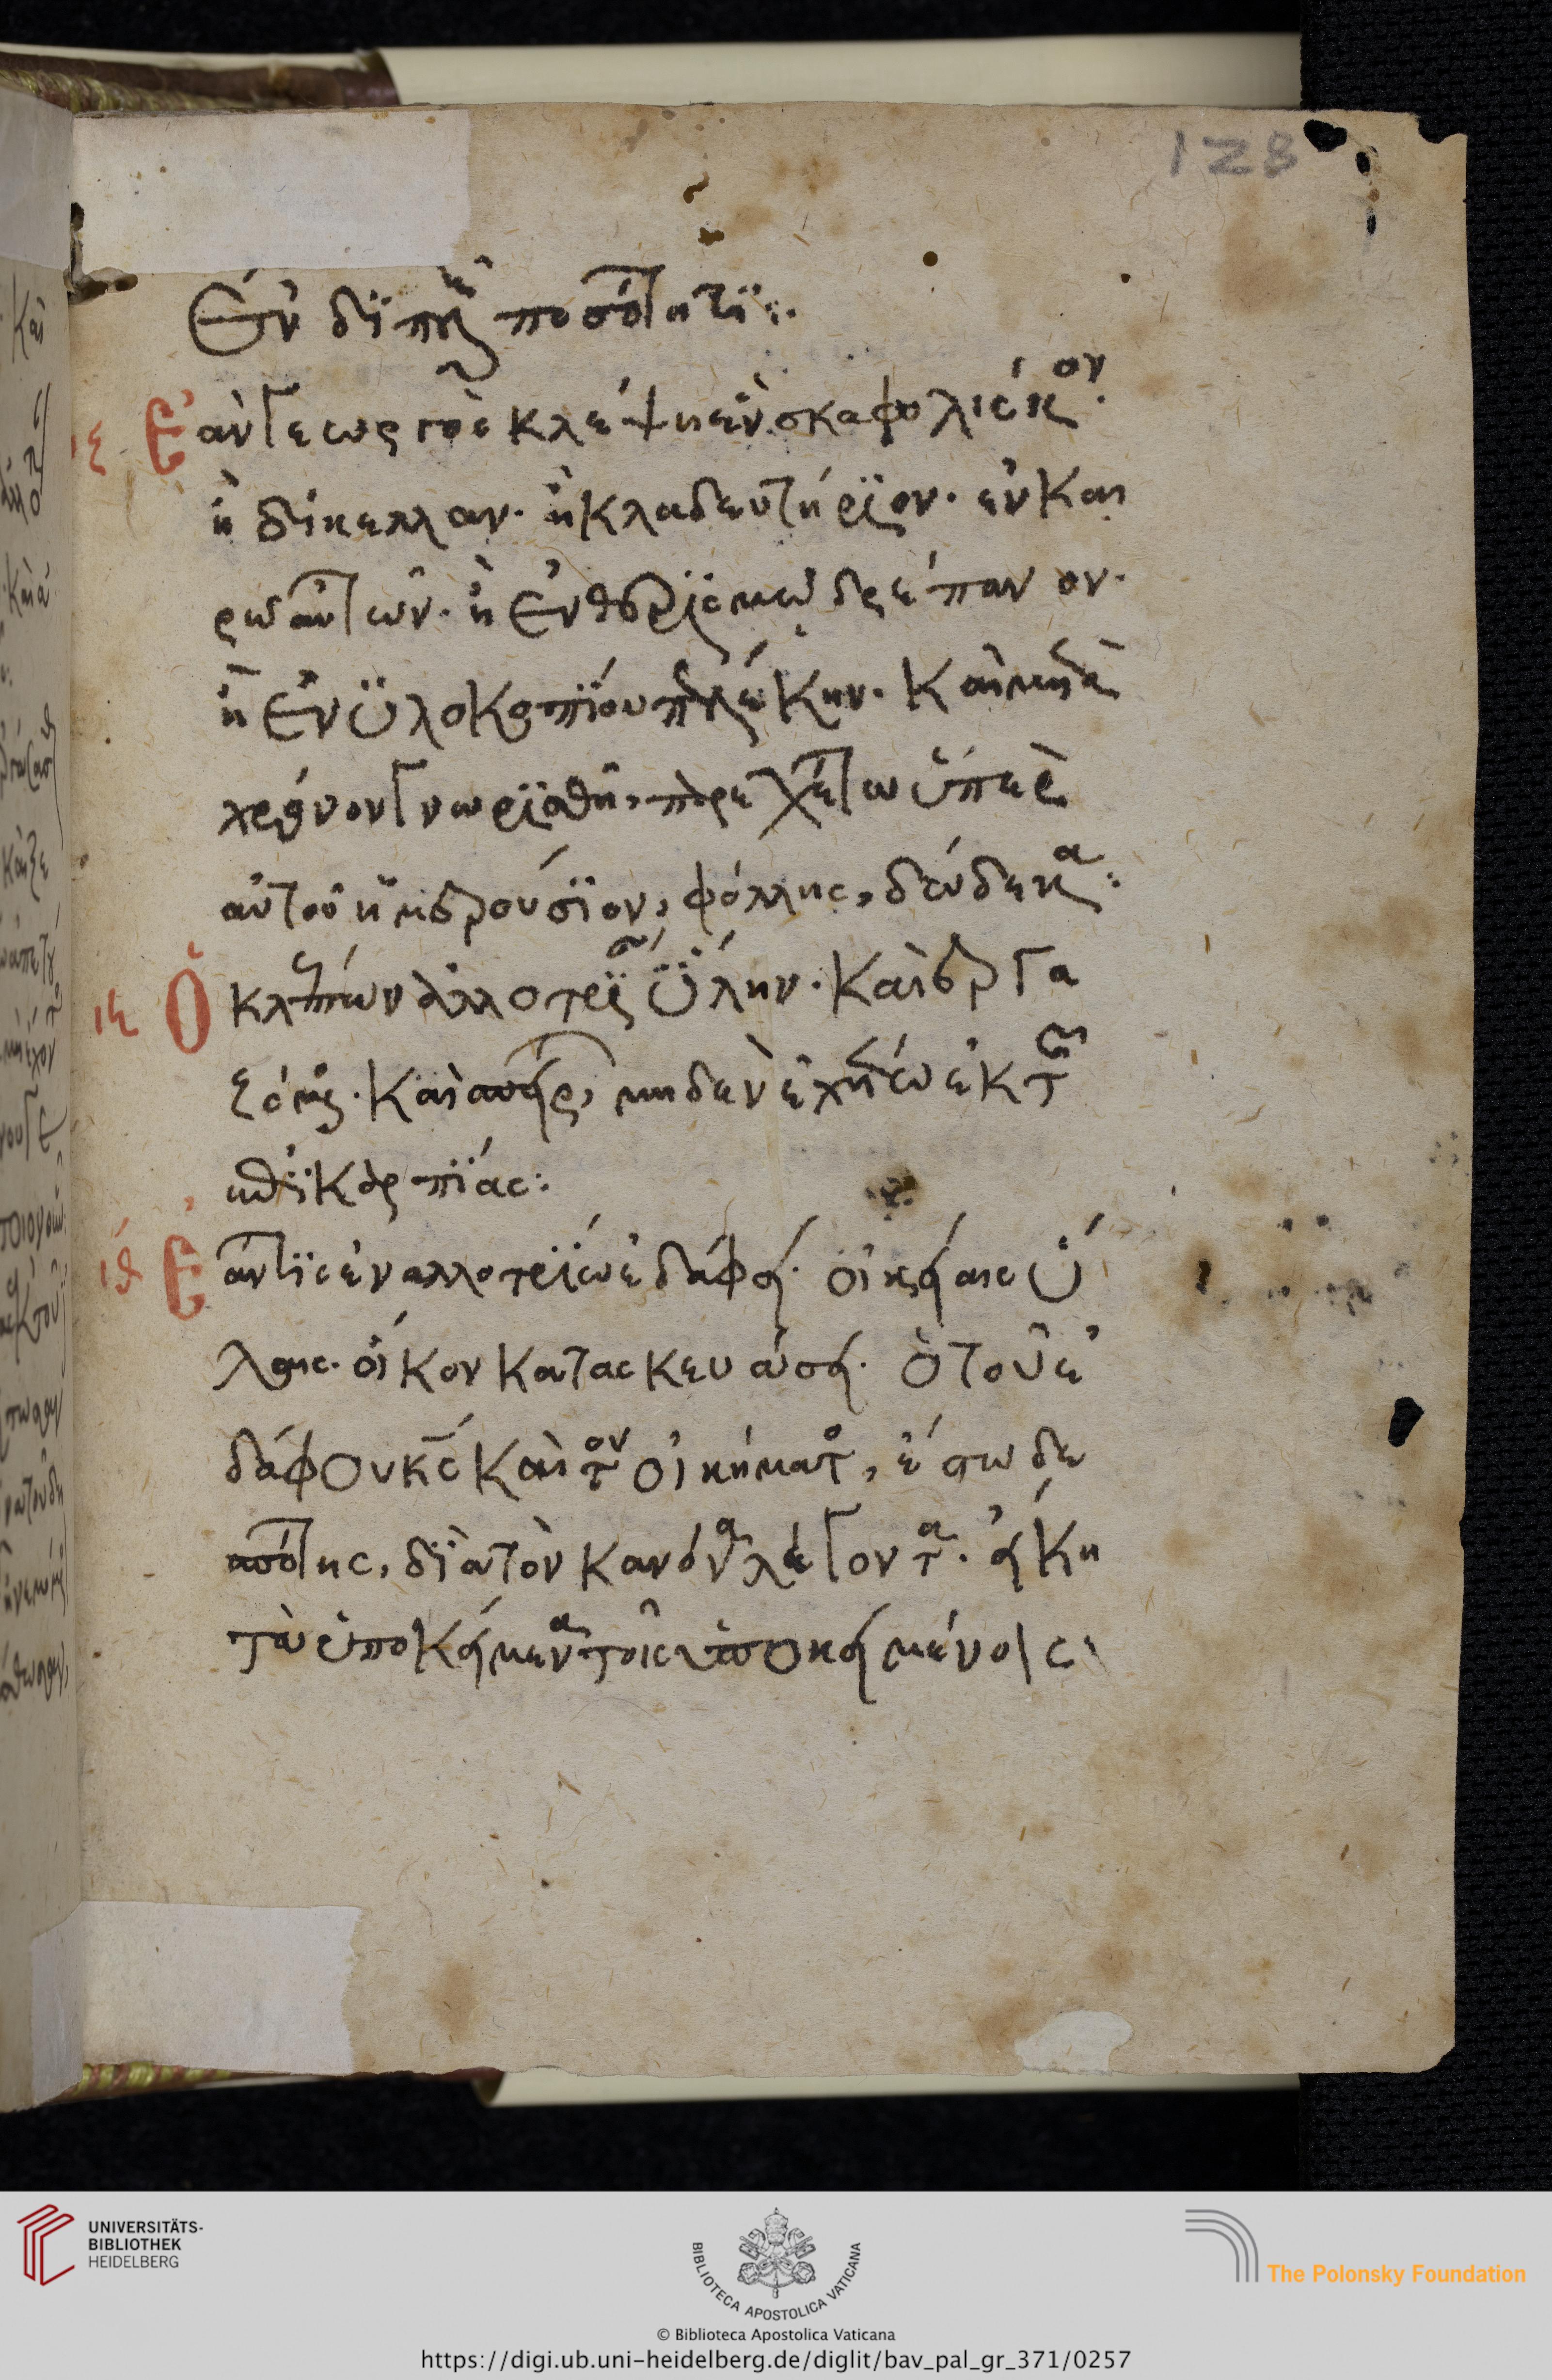 128
Ἐν διπλῇ ποσότητϊ :·
ιϛ Ἐὰν γεωργὸς κλέψη ἐν σκαφο λισκιον·
ἢ δίκελλαν· ἢ κλαδευτήρϊον· ἐν και
ρῶ αὐτῶν· ἢ Ἐν θερϊσμῶ δρέπαν ον·
ἢ Ἐν ϋλοκοπϊου πελέκην· Καὶ μετὰ
χρόνον γνωρϊσθῆ, παρεχέτω ὑπὲρ
αὐτοῦ ἡμερούσϊον, φόλλης, δώδεκα :
ιη Ὁ κλέπτων ἀλλοτρϊαν ϋλην· Καὶ ἐργα
ζόμενος· Καὶ σπείρων, μηδὲν ἐχέτω ἐκ τῆς
ἐπϊκαρπϊάς :
ιθ Ἐάν τϊς ἐν αλλοτρϊω ἐδάφει· οἰκείαις ὕ
λαις· οἶκον κατασκευάσει· ὁ τοῦ ἐ
δάφους καὶ τοῦ οἰκήματος, ἔστω δε
σπότης, δϊὰ τὸν κανόνα λέγοντα· εἴκη
τὰ ὑποκείμενα τοῖς ὑποκειμένοις
UNIVERSITÄTS-
BIBLIOTHEK
HEIDELBERG
BIBLIOTECA APOSTOLICA VATICANA
The Polonsky Foundation
© Biblioteca Apostolica Vaticana
https://digi.ub.uni-heidelberg.de/diglit/bav_pal_gr_371/0257